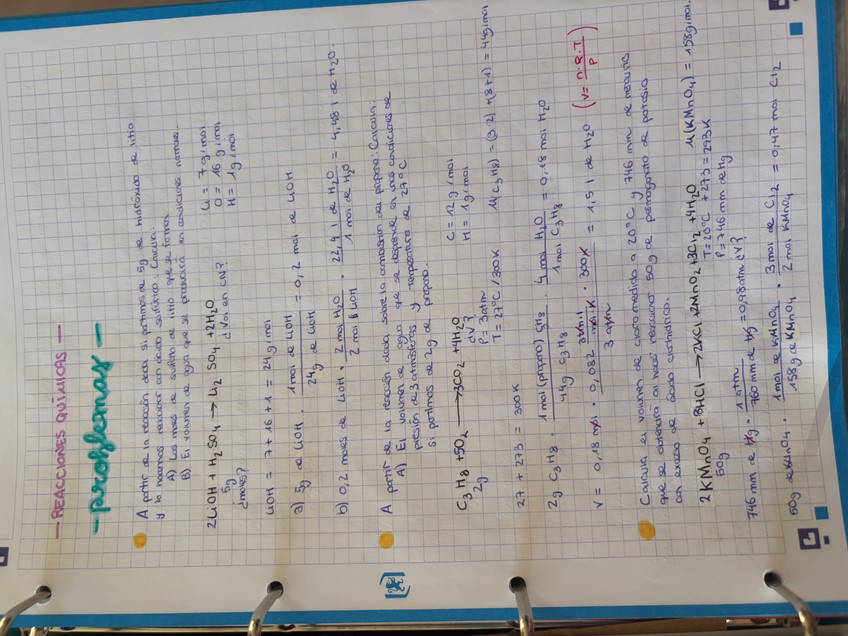 — REACCIONES QUÍMICAS —
— problemas —
A partir de la reacción dada si partimos de 5g de hidróxido de litio
y lo hacemos reaccionar con ácido sulfúrico. Calcula:
A) Los moles de sulfato de litio que se forman.
B) El volumen de agua que se producirá en condiciones normales.
2LiOH + H₂SO₄ → Li₂ SO₄ + 2H₂O
5g
¿moles?
¿Vol en CN?
Li = 7 g/mol
O = 16 g/mol
H = 1 g/mol
LiOH = 7 + 16 + 1 = 24 g/mol
a) 5g de LiOH · 1 mol de LiOH / 24g de LiOH = 0,2 mol de LiOH
b) 0,2 moles de LiOH · 2 mol H₂O / 2 mol LiOH · 22,4 l de H₂O / 1 mol de H₂O = 4,48 l de H₂O.
A partir de la reacción dada sobre la combustión del propano. Calcula:
A) El volumen de agua que se desprende en unas condiciones de
presión de 3 atmósferas y temperatura de 27°C
si partimos de 2g de propano.
C₃H₈ + 5O₂ → 3CO₂ + 4H₂O
2g
¿V?
P = 3atm
T = 27°C / 300K
C = 12g/mol
H = 1g/mol
M(C₃H₈) = (3·2) + (8+1) = 44g/mol
27 + 273 = 300K
2g C₃H₈ · 1 mol (propano) C₃H₈ / 44g C₃H₈ · 4 mol H₂O / 1 mol C₃H₈ = 0,18 mol H₂O
V = 0,18 mol · 0,082 atm·l / mol·K · 300K / 3 atm = 1,5 l de H₂O (V = n·R·T / P)
Calcula el volumen de cloro medido a 20°C y 746 mm de mercurio
que se obtendrá al hacer reaccionar 50g de permaganato de potasio
con exceso de ácido clorhídrico.
2KMnO₄ + 8HCl → 2KCl + 2MnO₂ + 3Cl₂ + 4H₂O
50g
¿V?
T = 20°C + 273 = 293K
P = 746 mm de Hg
M(KMnO₄) = 158g/mol.
746 mm de Hg · 1 atm / 760 mm de Hg = 0,98atm
50g de KMnO₄ · 1 mol de KMnO₄ / 158g de KMnO₄ · 3 mol de Cl₂ / 2 mol KMnO₄ = 0,47 mol Cl₂